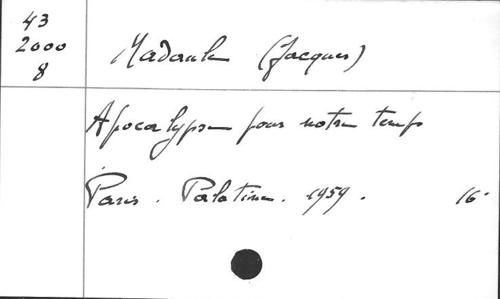 43
2000
8
Madaule (Jacques)
Apocalypse pour notre temps
Paris. Palatine. 1959. 16°